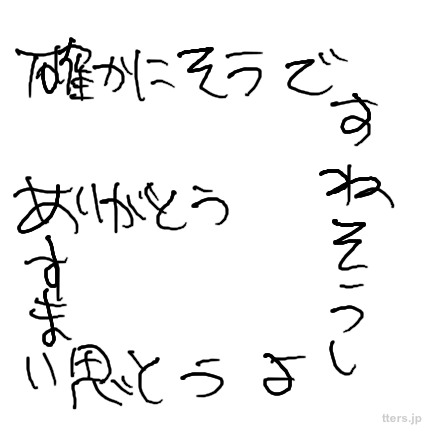 確かにそうで
すねそうし
ようと思い
ます
ありがとう
tters.jp